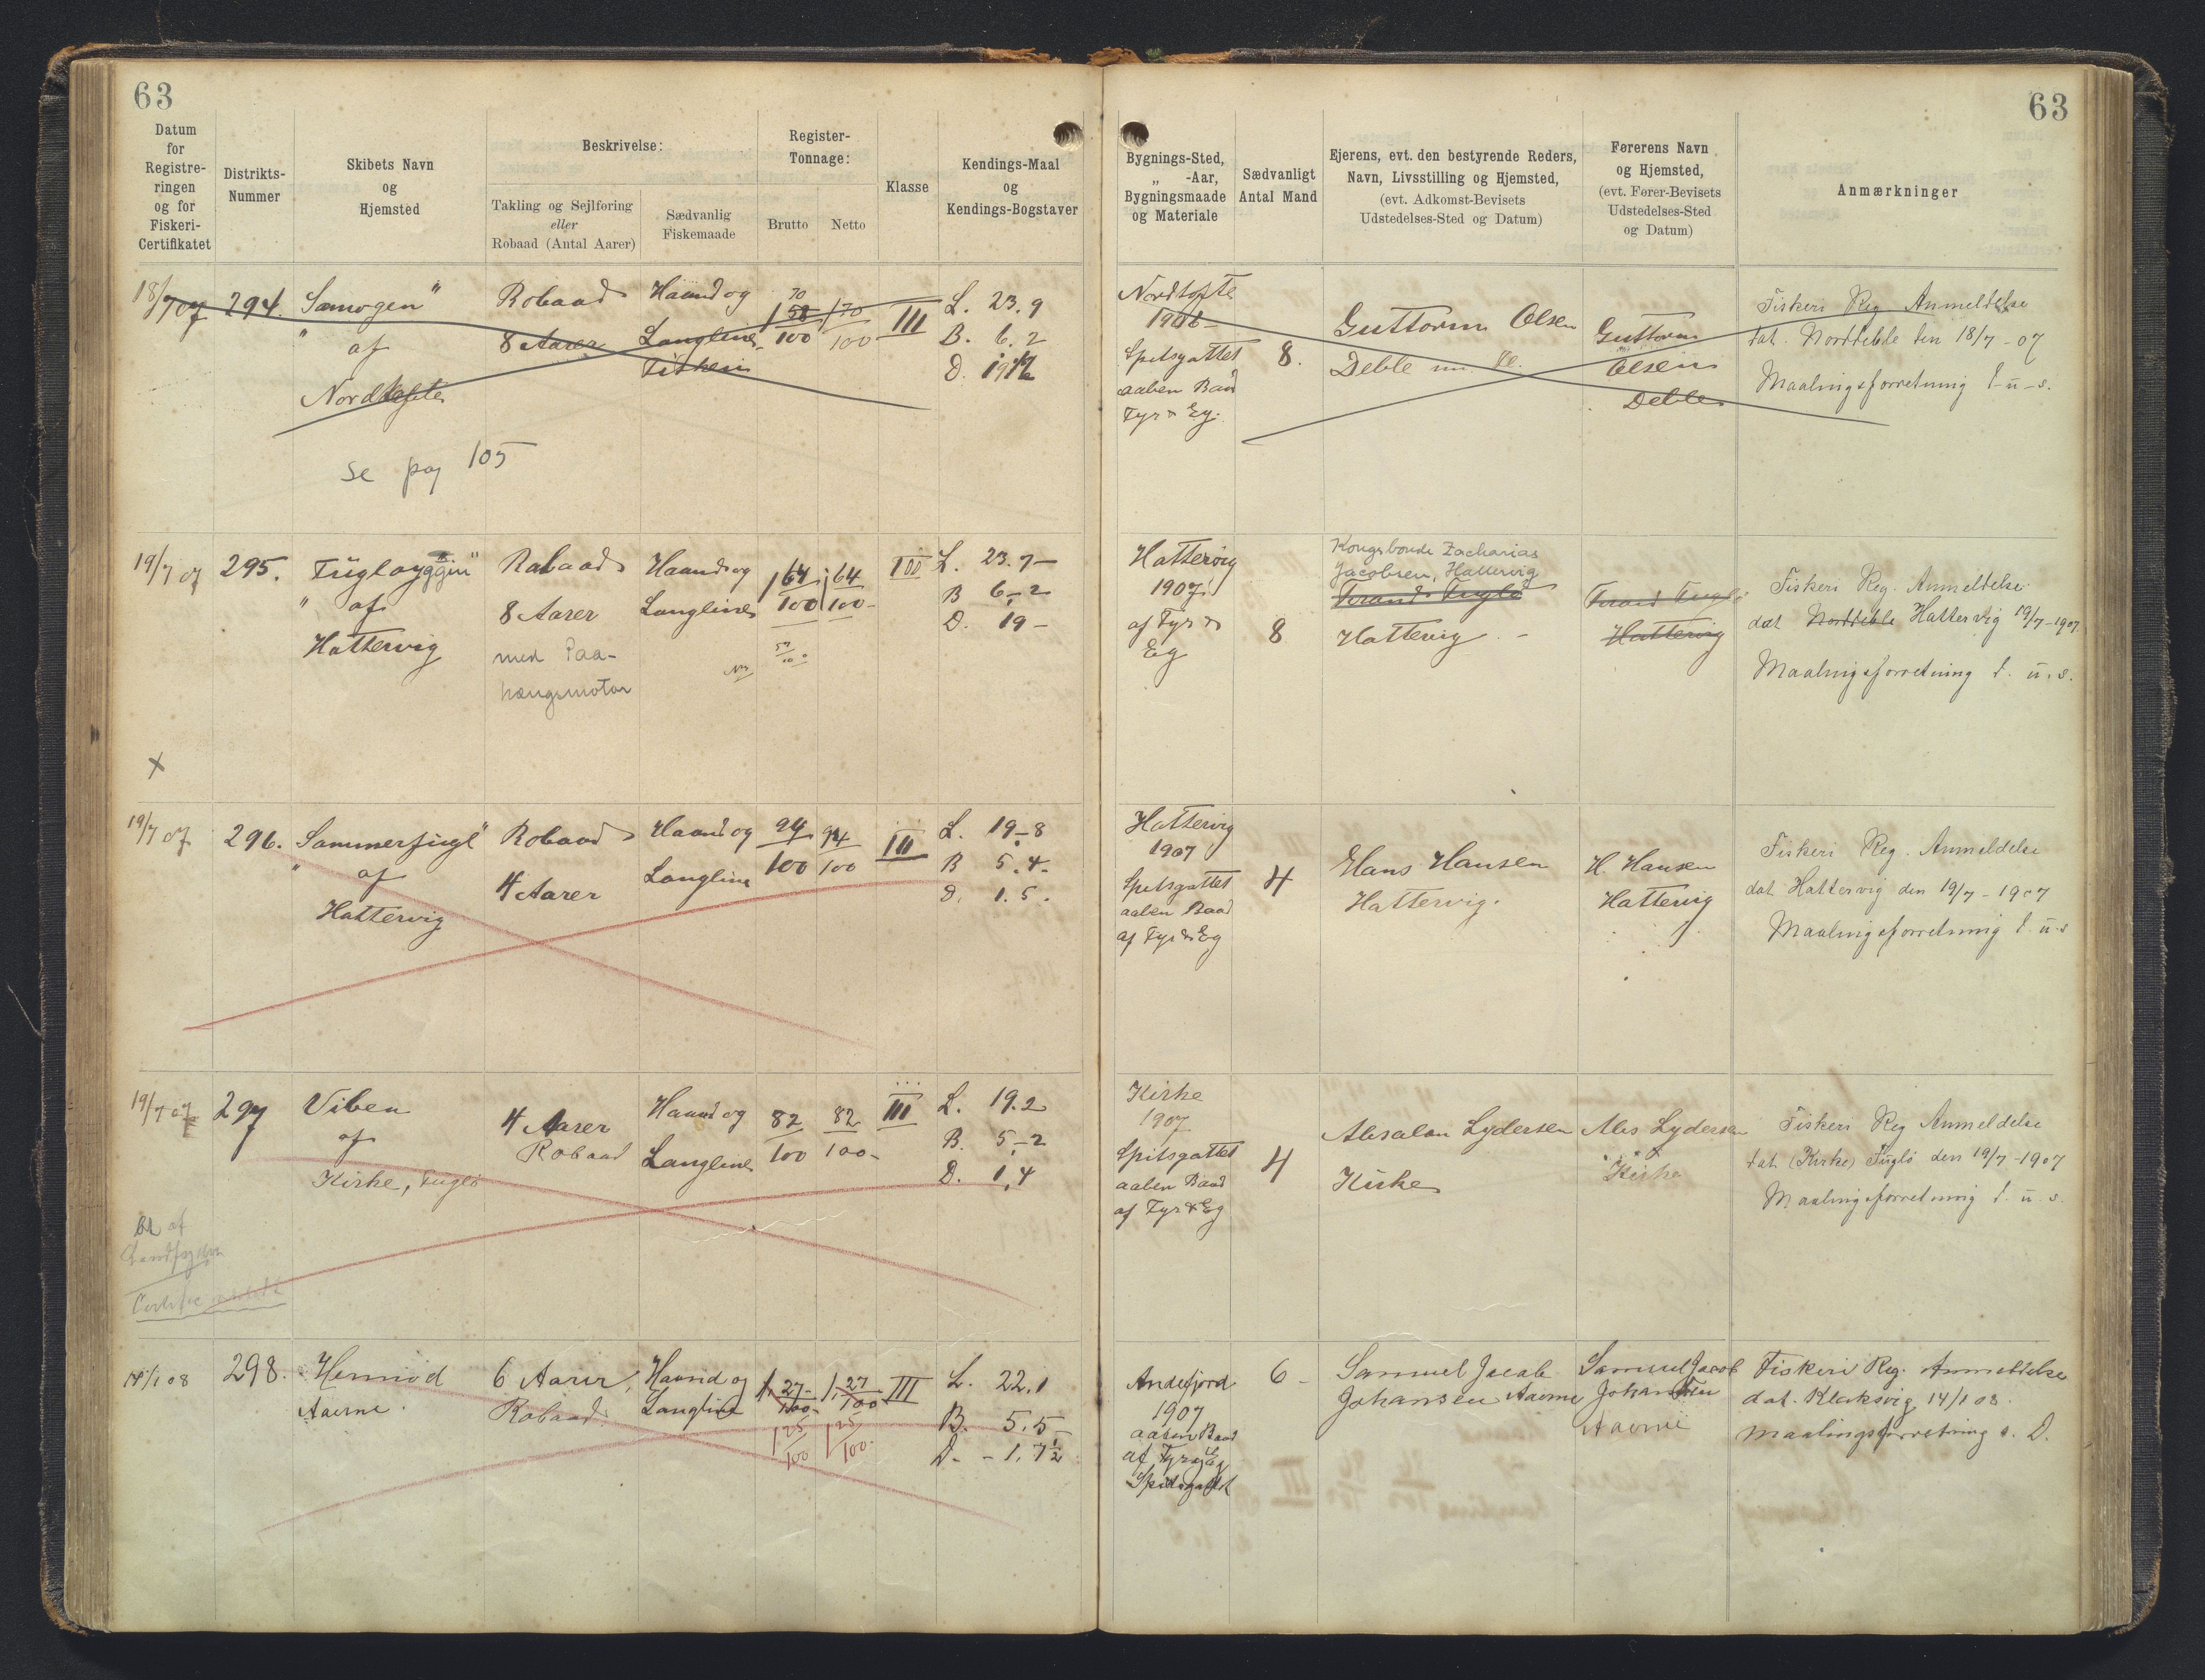 63
63
Datum
for
Registre-
ringen
og for
Fiskeri-
Certifikatet
Distrikts-
Nummer
Skibets Navn
og
Hjemsted
Beskrivelse:
Takling og Sejlføring
eller
Robaad (Antal Aarer)
Sædvanlig
Fiskemaade
Register-
Tonnage:
Brutto
Netto
Klasse
Kendings-Maal
og
Kendings-Bogstaver
Bygnings-Sted,
„ -Aar,
Bygningsmaade
og Materiale
Sædvanligt
Antal Mand
Ejerens, evt. den bestyrende Reders,
Navn, Livsstilling og Hjemsted,
(evt. Adkomst-Bevisets
Udstedelses-Sted og Datum)
Førerens Navn
og Hjemsted,
(evt. Fører-Bevisets
Udstedelses-Sted
og Datum)
Anmærkninger
18/7 07
294.
"
af
Nordtofte
se pag 105
Robaad
8 Aarer
Haand og
Langline
Fiskeri
70
1 58/100
1 70/100
III
L. 23.9
B. 6.2
D.
Nordtofte
1906
Spitsgattet
aaben Baad
Fyr & Eg.
8.
Guttorm Olsen
Deble
Guttorm
Olsen
Deble
Fiskeri Reg Anmeldelse
dat. Norddeble den 18/7 - 07
Maalingsforretning f - u - s.
19/7 07
295.
" af
Hattervig
Robaad
8 Aarer
med Paa-
hængsmotor
Haand og
Langline
1 64/100
1 64/100
III
L. 23.7 -
B 6 - 2
D. 19 -
Hattervig
1907
af Fyr &
Eg
8
Kongsbonde Zacharias
Jacobsen, Hattervig
Hattervig
Hattervig
Fiskeri Reg. Anmeldelse
dat Norddeble Hattervig 19/7 - 1907
Maalingsforretning f. u. s.
x
19/7 07
296.
Sommerfugl"
" af
Hattervig
Robaad
4 Aarer
Haand og
Langline
94/100
94/100
III
L. 19 - 8
B 5.4.
D. 1.5.
Hattervig
1907
Spitsgattet
aaben Baad
af Fyr & Eg
4
Hans Hansen
Hattervig.
H. Hansen
Hattervig
Fiskeri Reg. Anmeldelse
dat Hattervig den 19/7 - 1907
Maalingsforretning f. u. s
19/7 07
297
Viben
af
Kirke, Fuglø
4 Aarer
Robaad
Haand og
Langline
82/100
82/100 -
III
L. 19.2
B. 5 - 2
D. 1,4
Kirke
1907
Spitsgattet
aaben Baad
af Fyr & Eg
4
Absalon Lydersen
Kirke
Abs Lydersen
Kirke
Fiskeri Reg Anmeldelse
dat (Kirke) Fuglø den 19/7 - 1907
Maalingsforretning f. u. s.
af
14/1 08
298.
Hermod
Aaerne.
6 Aarer,
Robaad.
Haand og
Langline
1, 27/100
1, 27/100
1 25/100
1 25/100.
III
L. 22.1
B. 5.5 -
D. - 1.7 1/2
Andefjord
1907
aaben Baad
af Fyr og Eg
Spidsgattet
6 -
Samuel Jacob
Johansen Aaerne
Samuel Jacob
Johansen
Aaerne
Fiskeri Reg. Anmeldelse
dat. Klaksvig 14/1 08.
Maalingsforretning s. D.